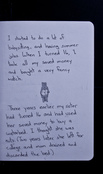 I started to do a lot of
babysitting, and having summer
jobs. When I turned 16, I
took all my saved money
and bought a very fancy
watch.
Three years later my sister
had turned 16 and had used
her saved money to buy a
I thought she was
nuts. (Two years later she left for
college and mom cleaned and
discarded the bed.)